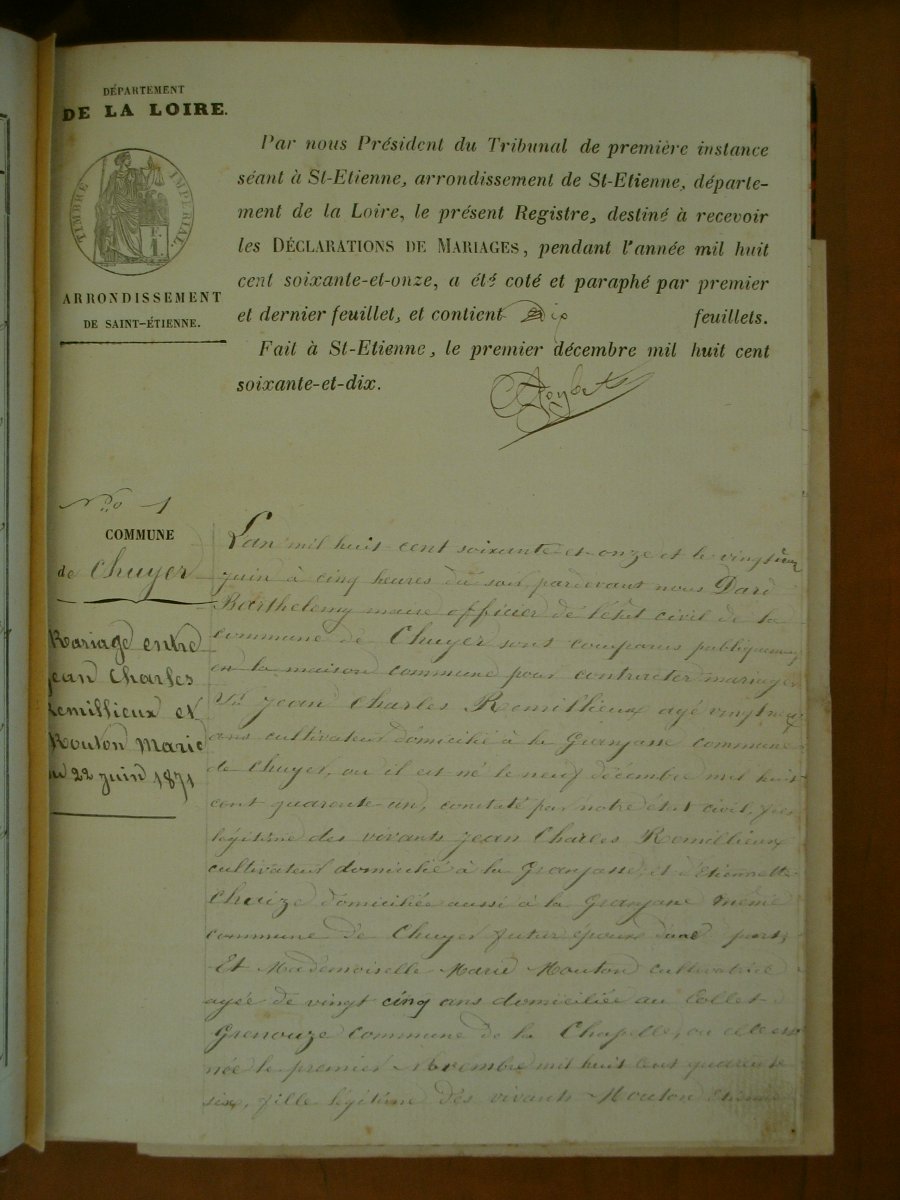 DÉPARTEMENT
DE LA LOIRE.
TIMBRE IMPÉRIAL.
ARRONDISSEMENT
DE SAINT-ÉTIENNE.
Par nous Président du Tribunal de première instance
séant à St-Etienne, arrondissement de St-Etienne, départe-
ment de la Loire, le présent Registre, destiné à recevoir
les DÉCLARATIONS DE MARIAGES, pendant l'année mil huit
cent soixante-et-onze, a été coté et paraphé par premier
et dernier feuillet, et contient Dix feuillets.
Fait à St-Etienne, le premier décembre mil huit cent
soixante-et-dix.
No 1
COMMUNE
de Chuyer
Mariage entre
Jean Charles
Remillieux et
Mouton Marie
du 22 juin 1871
L'an mil huit cent soixante et onze et le vingt deux
juin à cinq heures du soir, pardevant nous
Barthelemy maire officier de l'état civil de la
commune de Chuyer sont comparus publiquement
en la maison commune pour contracter mariage
Jean Charles Remillieux agé vingt neuf
ans cultivateur domicilié à la Granjasse commune
de Chuyer, ou il est né le neuf décembre mil huit
cent quarante un, constaté par notre état civil, fils
légitime des vivants Jean Charles Remillieux
cultivateur domicilié à la Granjasse, et d'Etiennette
Chuize domiciliée aussi à la Granjasse même
commune de Chuyer futur époux d'une part,
Et Mademoiselle Marie Mouton cultivatrice
agée de vingt cinq ans domiciliée au Collet
Grenouze commune de la Chapelle, ou elle est
née le premier Novembre mil huit cent quarante
six, fille légitime des vivants Mouton